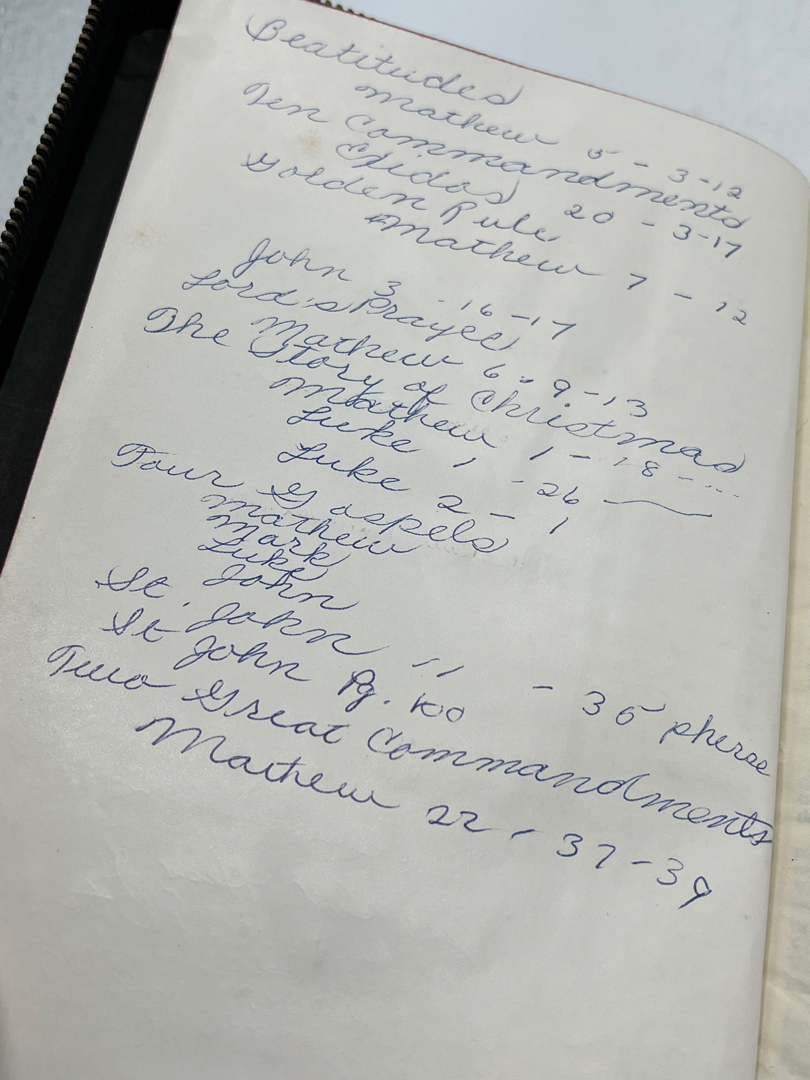 Beatitudes
Mathew 5 - 3-12
Ten Commandments
Exidos 20 - 3-17
Golden Rule
Mathew 7 - 12
John 3 - 16-17
Lord's Prayer
Mathew 6 - 9-13
The Story of Christmas
Mathew 1 - 18 - ...
Luke 1 - 26
Luke 2 - 1
Four Gospels
Mathew
Mark
Luke
John
St. John 11 - 35 pherse
St John Pg. 100
Two Great Commandments
Mathew 22 - 37-39